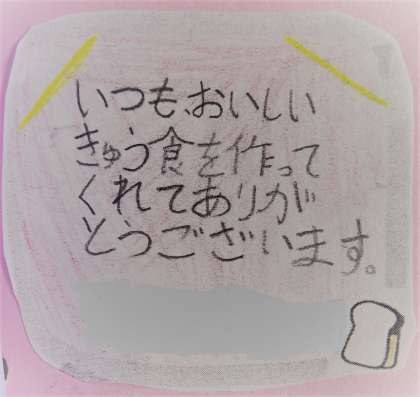 いつも、おいしい
きゅう食を作って
くれてありが
とうございます。